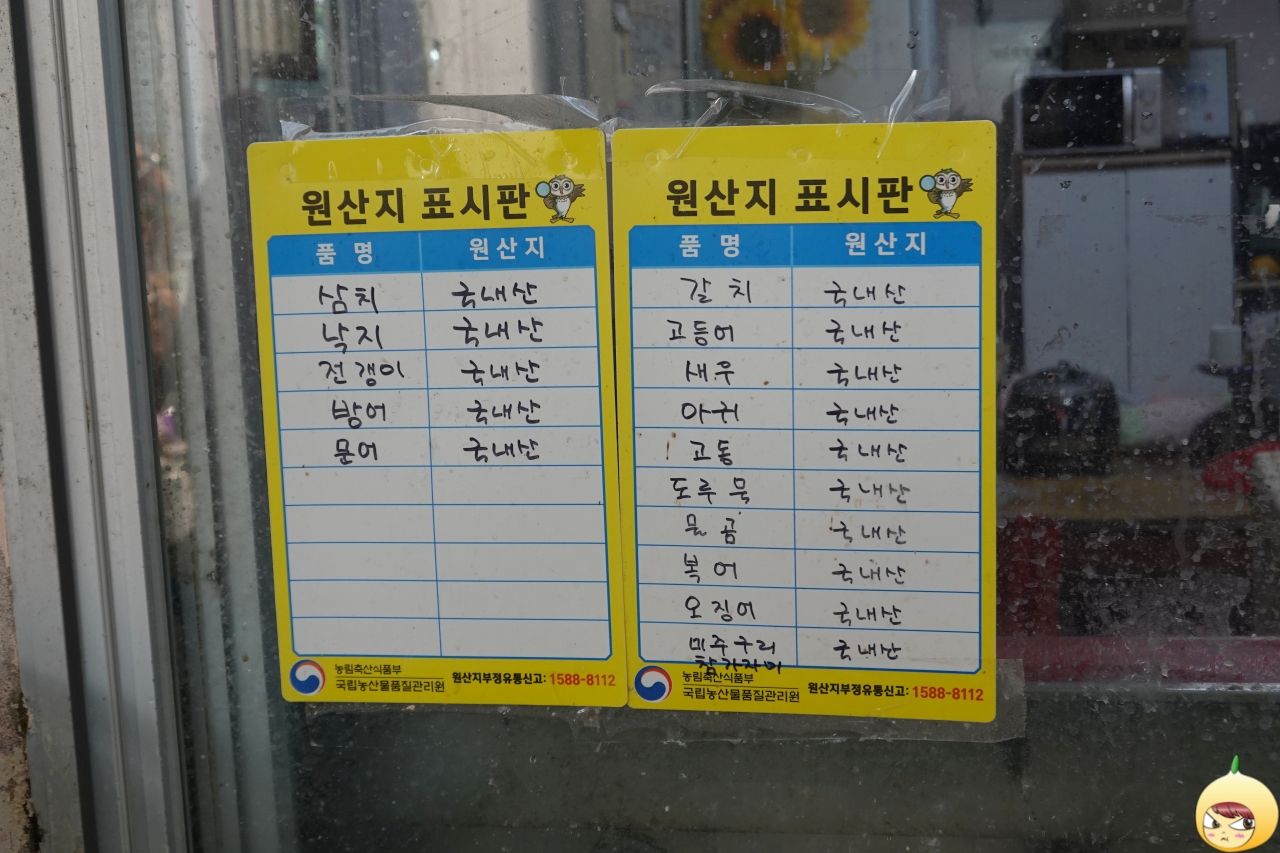 원산지 표시판
품 명 원산지
삼치 국내산
낙지 국내산
전갱이 국내산
방어 국내산
문어 국내산
농림축산식품부
국립농산물품질관리원
원산지부정유통신고: 1588-8112
원산지 표시판
품 명 원산지
갈치 국내산
고등어 국내산
새우 국내산
아귀 국내산
고동 국내산
도루묵 국내산
물곰 국내산
복어 국내산
오징어 국내산
미주구리 국내산
참가자미
농림축산식품부
국립농산물품질관리원
원산지부정유통신고: 1588-8112